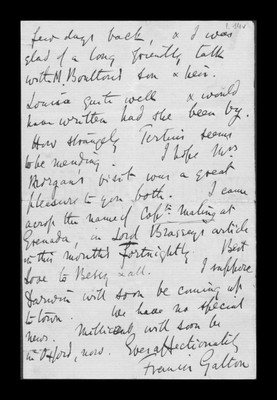 few days back, & I was
glad of a long friendly talk
with M. Boulton's son & heir.
Louisa quite well & would
have written had she been by.
How strangely Tertius seems
to be mending. I hope Mrs
visit was a great
pleasure to you both. I came
across the name of Capt. Maling at
Grenada, in Lord Brassey's article
in this month's Fortnightly Best
love to Bessy & all. I suppose
Darwin will soon be coming up
to town. We have no special
news. Millicent will soon be
in Oxford, now. Ever affectionately
Francis Galton